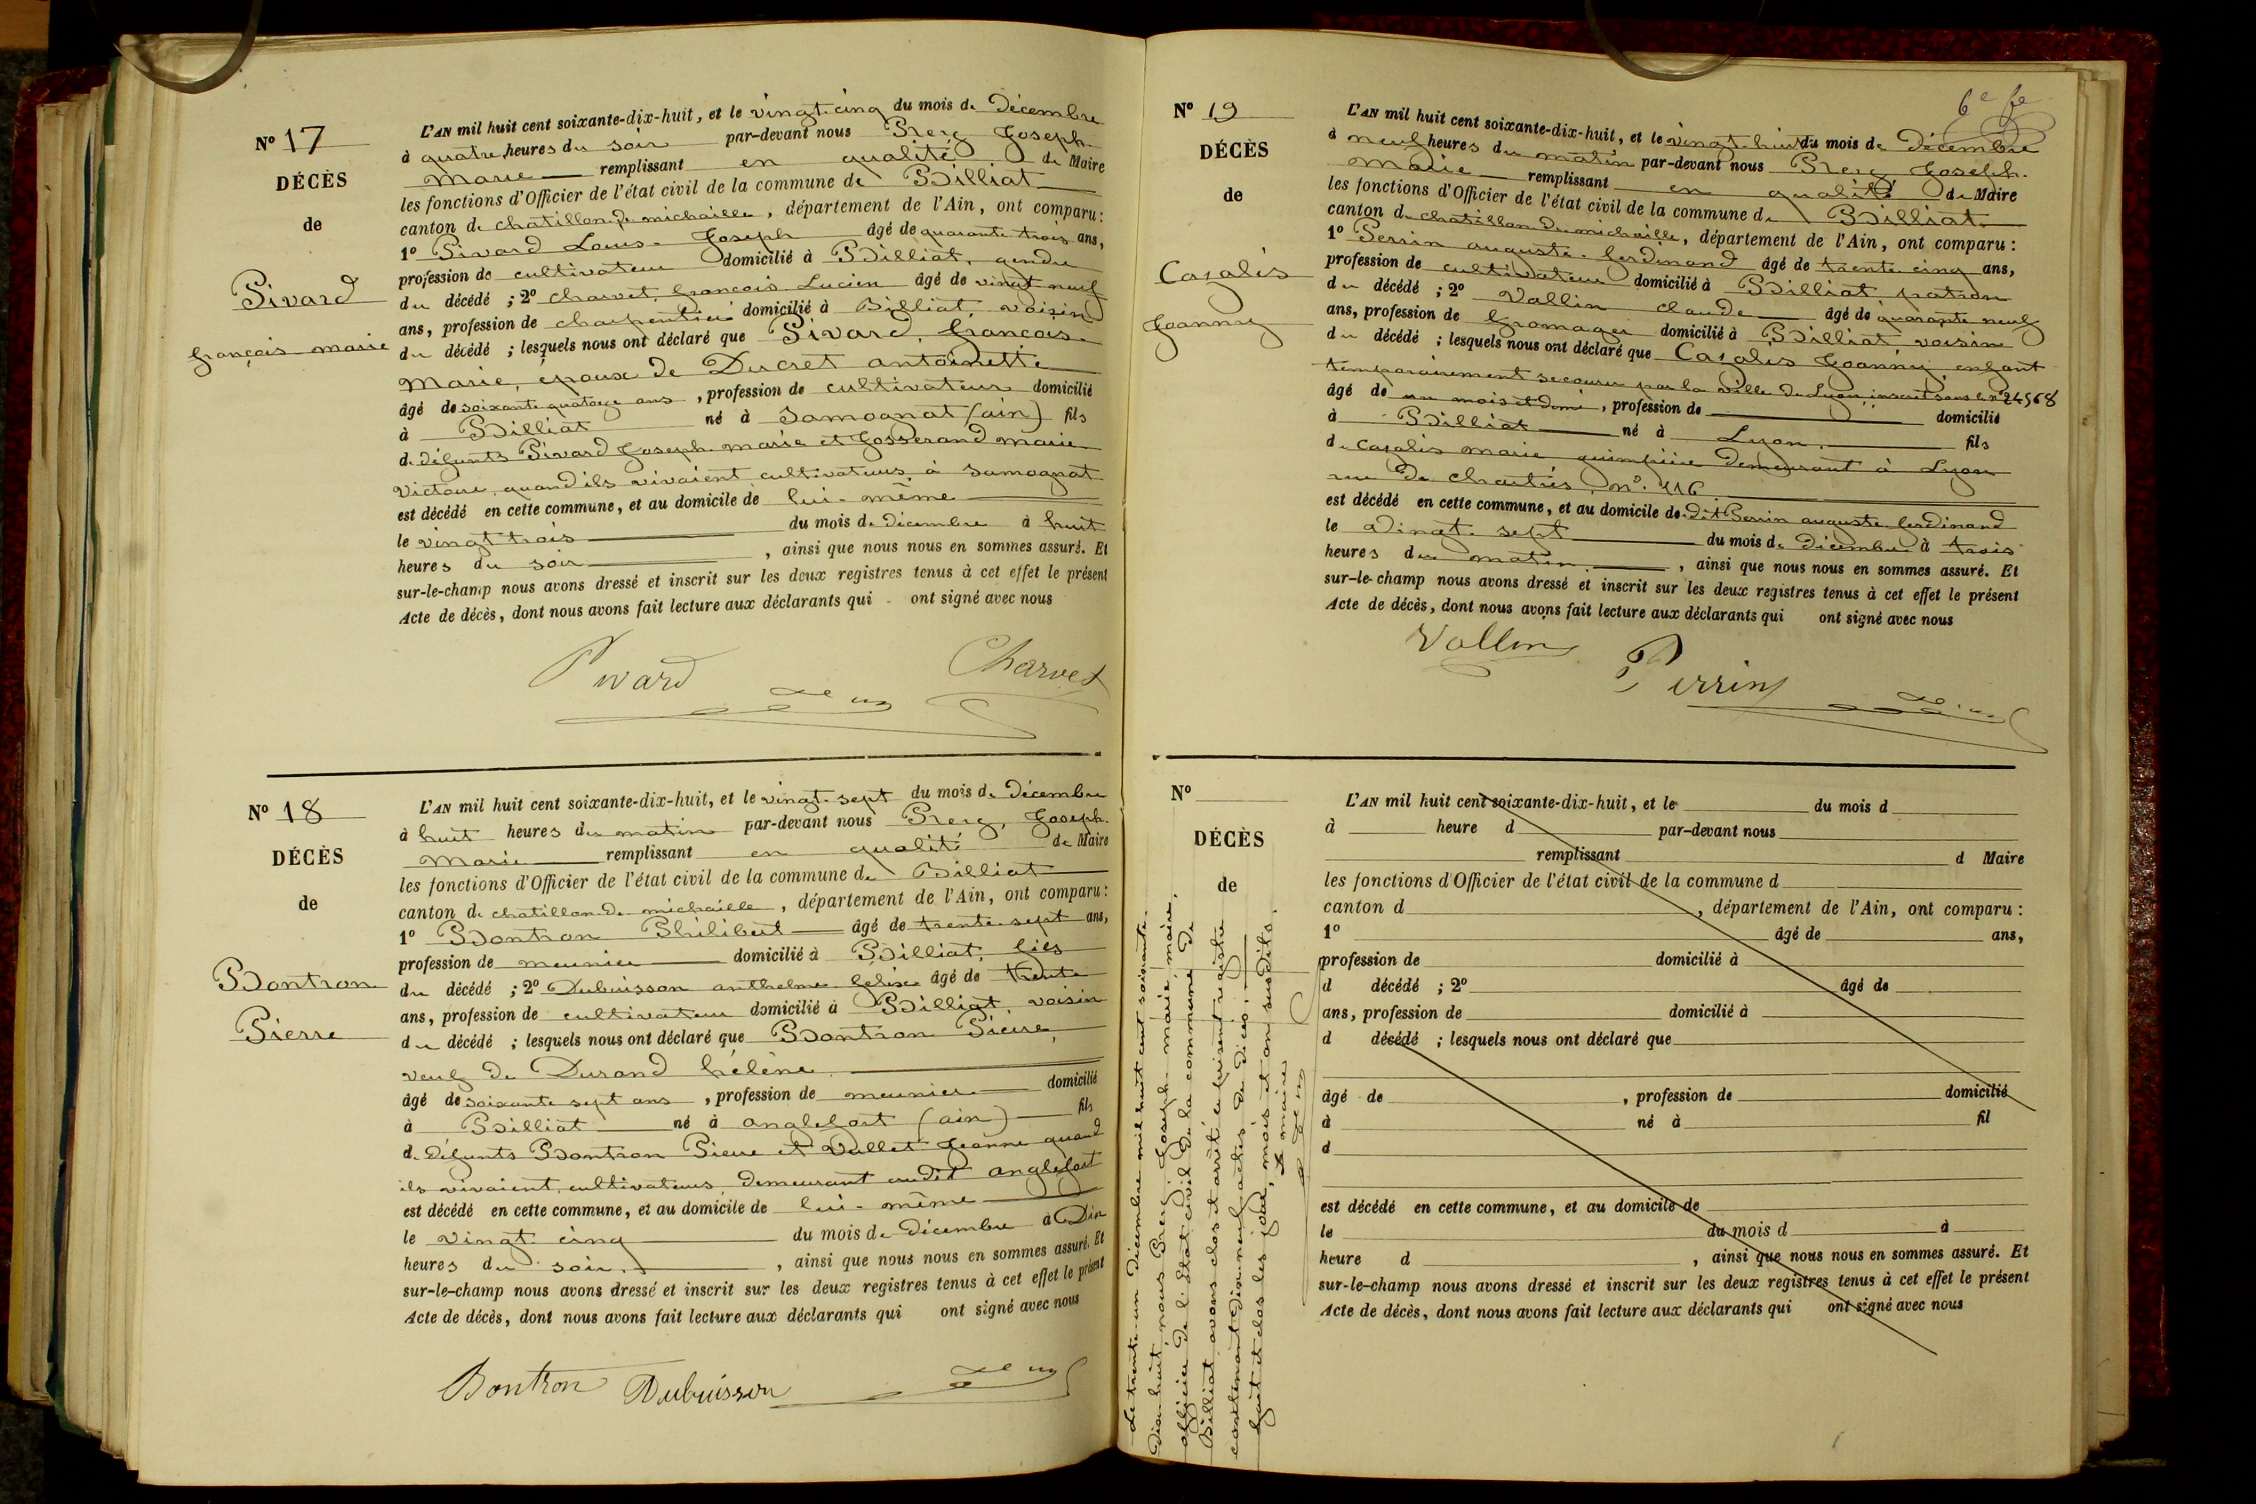 N° 17
DÉCÈS
de
Pivard
françois marie
L'AN mil huit cent soixante-dix-huit, et le vingt-cinq du mois de Décembre
à quatre heures du soir par-devant nous Prery Joseph
Marie remplissant en qualité de Maire
les fonctions d'Officier de l'état civil de la commune de Billiat
canton de chatillon de michaille, département de l'Ain, ont comparu :
1° Pivard Louis-Joseph âgé de quarante trois ans,
profession de cultivateur domicilié à Billiat, gendre
du décédé ; 2° Charvet, françois Lucien âgé de vingt neuf
ans, profession de charpentier domicilié à Billiat, voisin
du décédé ; lesquels nous ont déclaré que Pivard, françois-
Marie, époux de Ducret antoinette
âgé de soixante quatorze ans, profession de cultivateur domicilié
à Billiat né à Samognat (ain) fils
de défunts Pivard Joseph marie et Josserand marie
Victoire, quand ils vivaient cultivateurs à Samognat
est décédé en cette commune, et au domicile de lui-même
le vingt trois du mois de décembre à huit
heures du soir, ainsi que nous nous en sommes assuré. Et
sur-le-champ nous avons dressé et inscrit sur les deux registres tenus à cet effet le présent
Acte de décès, dont nous avons fait lecture aux déclarants qui ont signé avec nous
Pivard Charvet
N° 18
DÉCÈS
de
Bontron
Pierre
L'AN mil huit cent soixante-dix-huit, et le vingt-sept du mois de Décembre
à huit heures du matin par-devant nous Prery, Joseph
Marie remplissant en qualité de Maire
les fonctions d'Officier de l'état civil de la commune de Billiat
canton de chatillon de michaille, département de l'Ain, ont comparu :
1° Bontron Philibert âgé de trente-sept ans,
profession de meunier domicilié à Billiat, fils
du décédé ; 2° Dubuisson anthelme felix âgé de trente
ans, profession de cultivateur domicilié à Billiat, voisin
du décédé ; lesquels nous ont déclaré que Bontron Pierre,
veuf de Durand hélène
âgé de soixante sept ans, profession de meunier domicilié
à Billiat né à anglefort (ain) fils
de défunts Bontron Pierre et Vallet Jeanne quand
ils vivaient, cultivateurs demeurant audit anglefort
est décédé en cette commune, et au domicile de lui-même
le vingt-cinq du mois de décembre à Dix
heures du soir, ainsi que nous nous en sommes assuré. Et
sur-le-champ nous avons dressé et inscrit sur les deux registres tenus à cet effet le présent
Acte de décès, dont nous avons fait lecture aux déclarants qui ont signé avec nous
Bontron Dubuisson
6e fe
N° 19
DÉCÈS
de
Cazalis
Joanny
L'AN mil huit cent soixante-dix-huit, et le vingt-huit du mois de décembre
à neuf heures du matin par-devant nous Prery Joseph
Marie remplissant en qualité de Maire
les fonctions d'Officier de l'état civil de la commune de Billiat
canton de chatillon de michaille, département de l'Ain, ont comparu :
1° Perrin auguste ferdinand âgé de trente cinq ans,
profession de cultivateur domicilié à Billiat patron
du décédé ; 2° Vallin claude âgé de quarante neuf
ans, profession de fromager domicilié à Billiat voisin
du décédé ; lesquels nous ont déclaré que Cazalis Joanny, enfant
temporairement secouru par la ville de Lyon inscrit sous le n° 24568
âgé de un mois et demi, profession de domicilié
à Billiat né à Lyon fils
de cazalis marie demeurant à Lyon
rue de chartres, n° 116
est décédé en cette commune, et au domicile de dit Perrin auguste ferdinand
le vingt-sept du mois de décembre à trois
heures du matin, ainsi que nous nous en sommes assuré. Et
sur-le-champ nous avons dressé et inscrit sur les deux registres tenus à cet effet le présent
Acte de décès, dont nous avons fait lecture aux déclarants qui ont signé avec nous
Vallin Perrin
N°
DÉCÈS
de
Le trente-un décembre mil huit cent soixante
dix-huit, nous Prery, Joseph-marie, maire,
officier de l'état civil de la commune de
Billiat avons clos et arrêté le présent registre
contenant dix-neuf actes de décès.
fait et clos les jour, mois et an susdits.
Le maire
L'AN mil huit cent soixante-dix-huit, et le du mois d
à heure d par-devant nous
remplissant d Maire
les fonctions d'Officier de l'état civil de la commune d
canton d , département de l'Ain, ont comparu :
1° âgé de ans,
profession de domicilié à
d décédé ; 2° âgé de
ans, profession de domicilié à
d décédé ; lesquels nous ont déclaré que
âgé de , profession de domicilié
à né à fil
d
est décédé en cette commune, et au domicile de
le du mois d à
heure d , ainsi que nous nous en sommes assuré. Et
sur-le-champ nous avons dressé et inscrit sur les deux registres tenus à cet effet le présent
Acte de décès, dont nous avons fait lecture aux déclarants qui ont signé avec nous